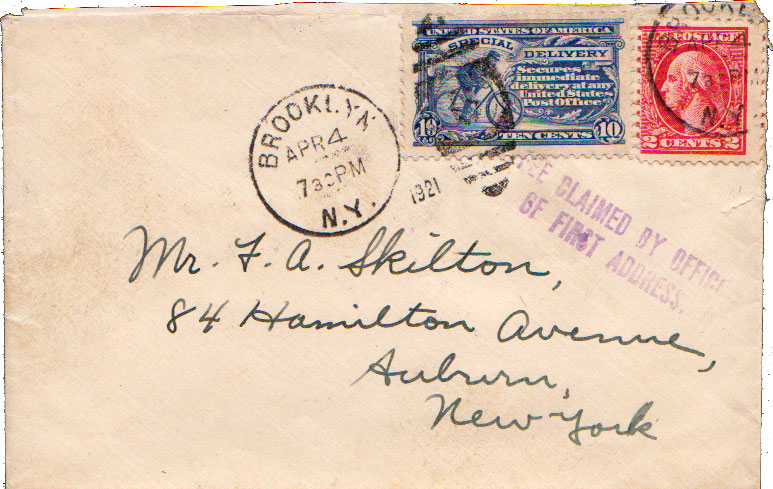 UNITED STATES OF AMERICA
SPECIAL DELIVERY
Secures
immediate
delivery at any
United States
Post Office
10 TEN CENTS 10
POSTAGE
2 CENTS 2
BROOKLYN
APR 4
730PM
N.Y.
1921
N.Y.
FEE CLAIMED BY OFFICE
OF FIRST ADDRESS.
Mr. F. A. Skilton,
84 Hamilton Avenue,
Auburn,
New York